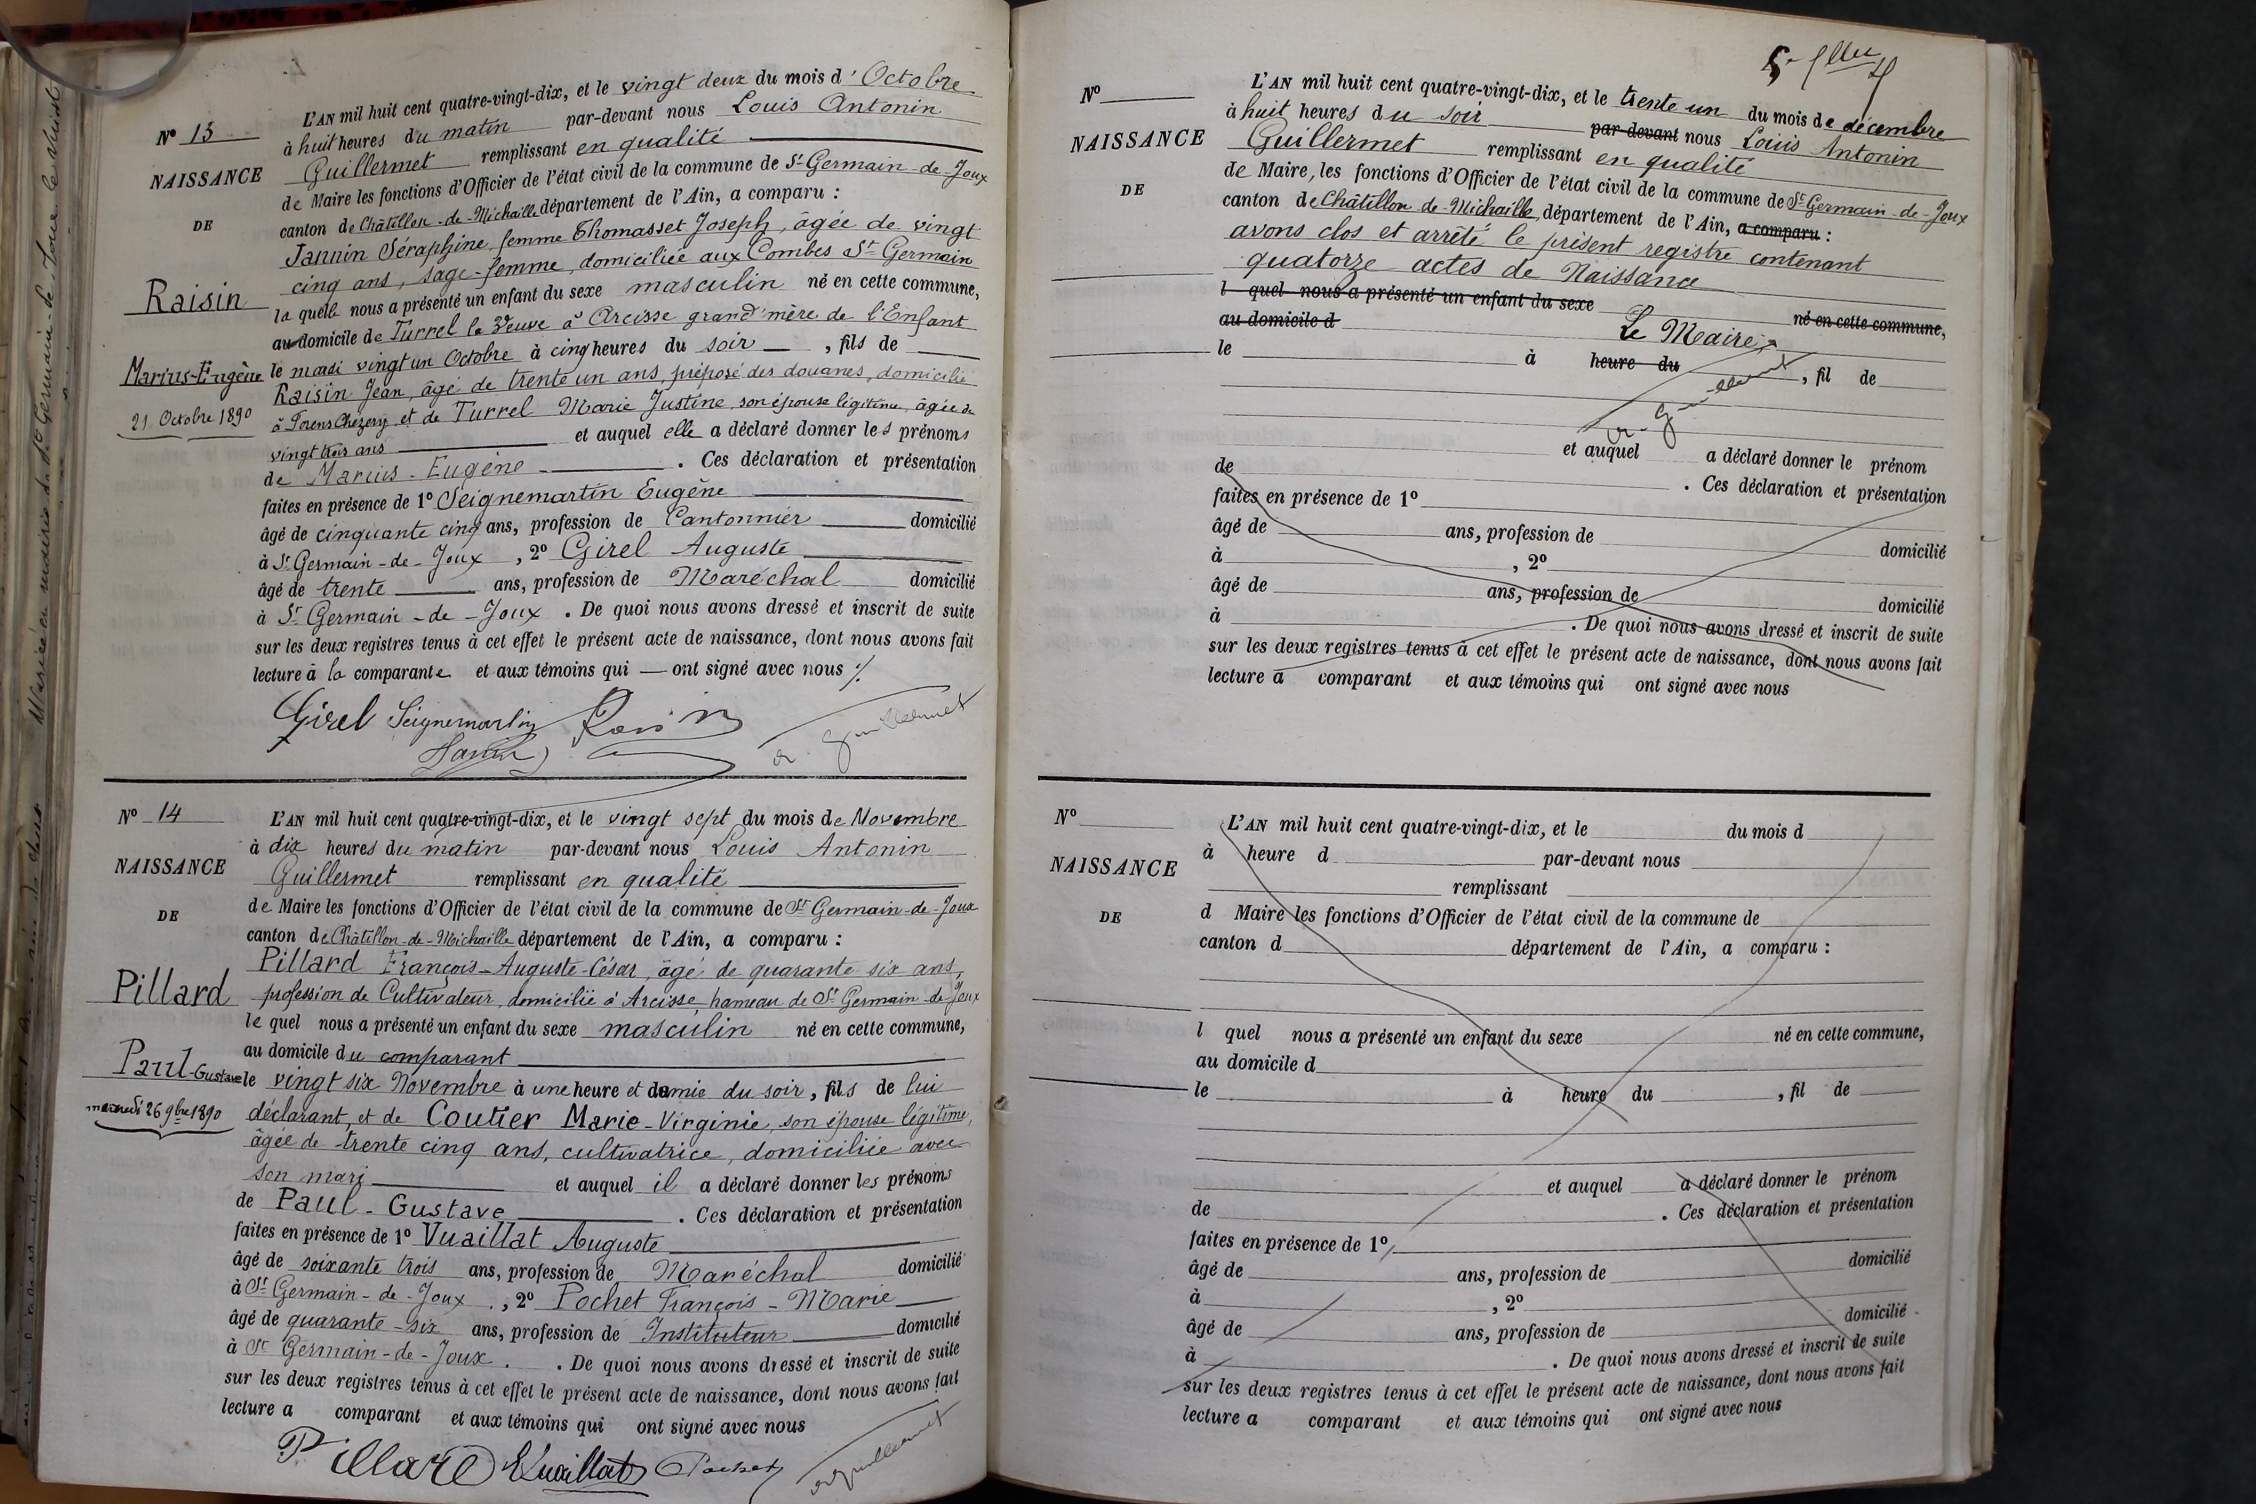 L'AN mil huit cent quatre-vingt-dix, et le vingt deux du mois d'Octobre
à huit heures du matin par-devant nous Louis Antonin
Guillermet remplissant en qualité
de Maire les fonctions d'Officier de l'état civil de la commune de St Germain-de-Joux
canton de Châtillon-de-Michaille département de l'Ain, a comparu :
Jannin Séraphine, femme Thomasset Joseph, âgée de vingt
cinq ans, sage-femme, domiciliée aux Combes St Germain
la quelle nous a présenté un enfant du sexe masculin né en cette commune,
au domicile de Turrel la Veuve à Arcisse grand'mère de l'Enfant
le mardi vingt un Octobre à cinq heures du soir, fils de
Raisin Jean, âgé de trente un ans, préposé des douanes, domicilié
à Forens Chézery et de Turrel Marie Justine, son épouse légitime, âgée de
vingt trois ans et auquel elle a déclaré donner les prénoms
de Marius-Eugène. Ces déclaration et présentation
faites en présence de 1º Seignemartin Eugène
âgé de cinquante cinq ans, profession de Cantonnier domicilié
à St Germain-de-Joux, 2º Girel Auguste
âgé de trente ans, profession de Maréchal domicilié
à St Germain-de-Joux. De quoi nous avons dressé et inscrit de suite
sur les deux registres tenus à cet effet le présent acte de naissance, dont nous avons fait
lecture à la comparante et aux témoins qui ont signé avec nous ./.
Nº 13
NAISSANCE
DE
Raisin
Marius-Eugène
21 Octobre 1890
Girel Seignemartin Raisin
Jannin A. Guillermet
Nº 14
NAISSANCE
DE
Pillard
Paul-Gustave
mercredi 26 9bre 1890
L'AN mil huit cent quatre-vingt-dix, et le vingt sept du mois de Novembre
à dix heures du matin par-devant nous Louis Antonin
Guillermet remplissant en qualité
de Maire les fonctions d'Officier de l'état civil de la commune de St Germain-de-Joux
canton de Châtillon-de-Michaille département de l'Ain, a comparu :
Pillard François-Auguste-César, âgé de quarante six ans,
profession de Cultivateur, domicilié à Arcisse, hameau de St Germain-de-Joux
le quel nous a présenté un enfant du sexe masculin né en cette commune,
au domicile du comparant
le vingt six Novembre à une heure et demie du soir, fils de lui
déclarant, et de Coutier Marie-Virginie, son épouse légitime,
âgée de trente cinq ans, cultivatrice, domiciliée avec
son mari et auquel il a déclaré donner les prénoms
de Paul-Gustave. Ces déclaration et présentation
faites en présence de 1º Vuaillat Auguste
âgé de soixante trois ans, profession de Maréchal domicilié
à St Germain-de-Joux, 2º Pochet François-Marie
âgé de quarante-six ans, profession de Instituteur domicilié
à St Germain-de-Joux. De quoi nous avons dressé et inscrit de suite
sur les deux registres tenus à cet effet le présent acte de naissance, dont nous avons fait
lecture a comparant et aux témoins qui ont signé avec nous
Pillard Vuaillat Pochet A. Guillermet
Nº
NAISSANCE
DE
L'AN mil huit cent quatre-vingt-dix, et le trente un du mois de décembre
à huit heures du soir par-devant nous Louis Antonin
Guillermet remplissant en qualité
de Maire, les fonctions d'Officier de l'état civil de la commune de St Germain-de-Joux
canton de Châtillon-de-Michaille, département de l'Ain, a comparu :
avons clos et arrêté le présent registre contenant
quatorze actes de Naissance
l quel nous a présenté un enfant du sexe né en cette commune,
au domicile d Le Maire,
le à heure du , fil de
A. Guillermet
et auquel a déclaré donner le prénom
de . Ces déclaration et présentation
faites en présence de 1º
âgé de ans, profession de domicilié
à , 2º
âgé de ans, profession de domicilié
à . De quoi nous avons dressé et inscrit de suite
sur les deux registres tenus à cet effet le présent acte de naissance, dont nous avons fait
lecture a comparant et aux témoins qui ont signé avec nous
Nº
NAISSANCE
DE
L'AN mil huit cent quatre-vingt-dix, et le du mois d
à heure d par-devant nous
remplissant
d Maire les fonctions d'Officier de l'état civil de la commune de
canton d département de l'Ain, a comparu :
l quel nous a présenté un enfant du sexe né en cette commune,
au domicile d
le à heure du , fil de
et auquel a déclaré donner le prénom
de . Ces déclaration et présentation
faites en présence de 1º
âgé de ans, profession de domicilié
à , 2º
âgé de ans, profession de domicilié
à . De quoi nous avons dressé et inscrit de suite
sur les deux registres tenus à cet effet le présent acte de naissance, dont nous avons fait
lecture a comparant et aux témoins qui ont signé avec nous